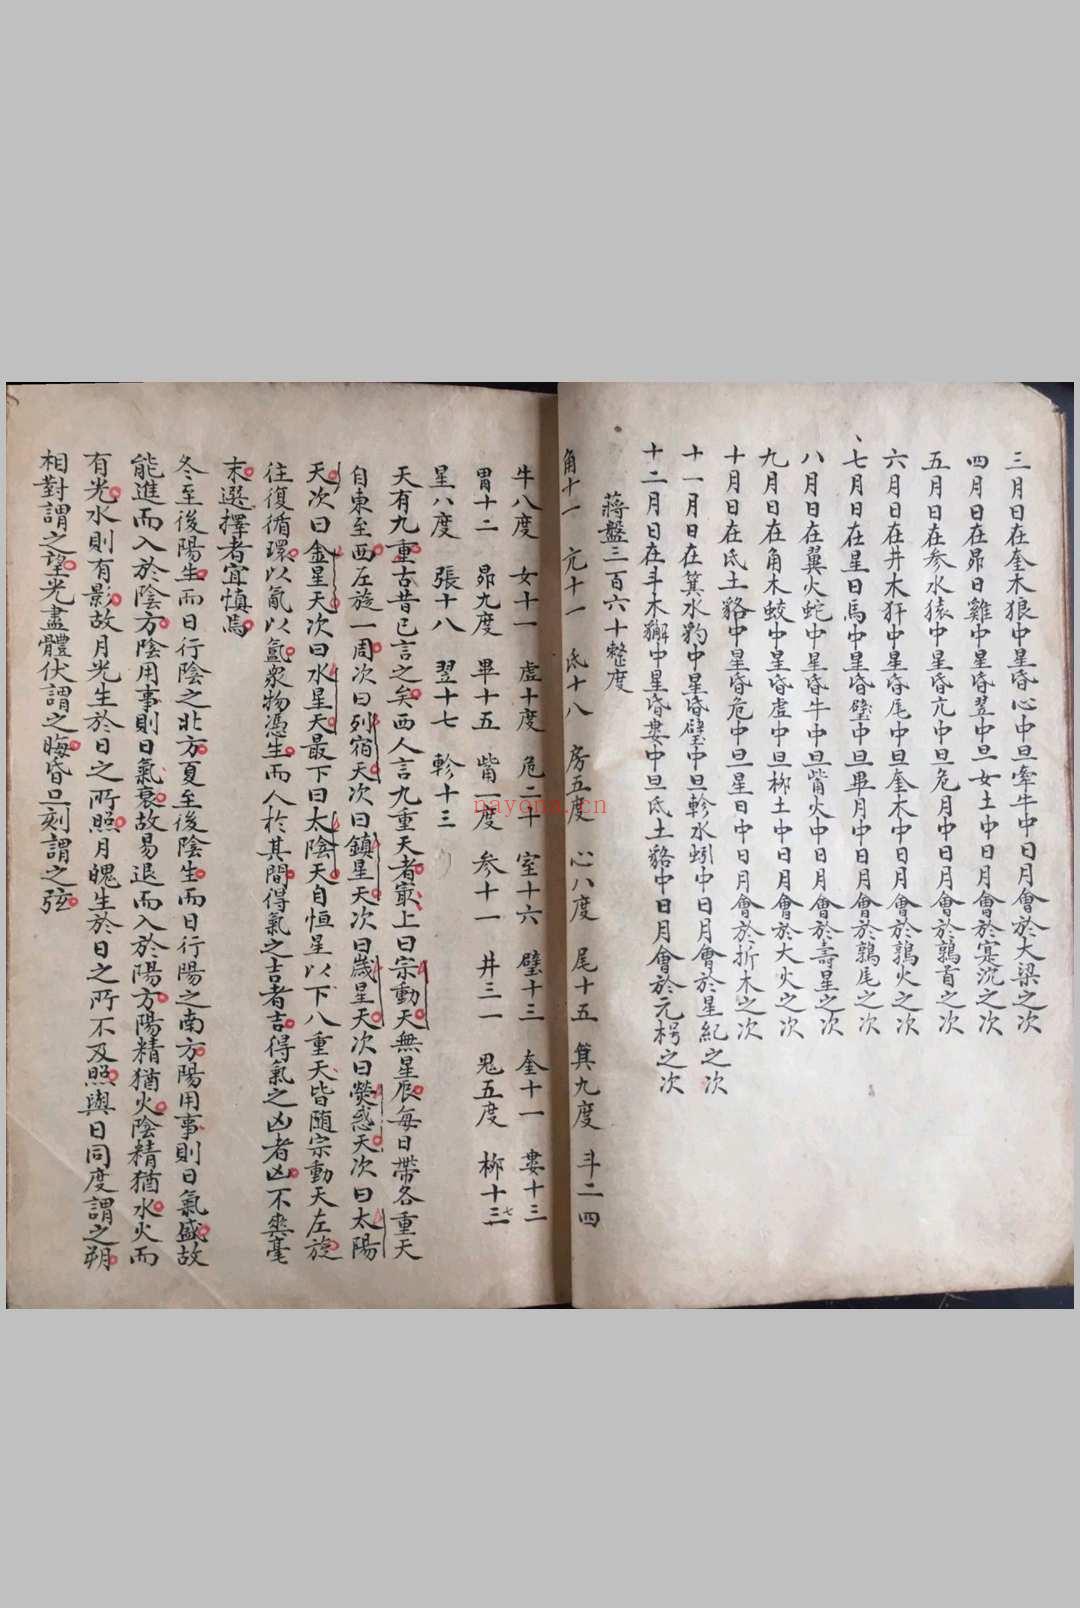 三月日在奎木狼中星昏心中旦牽牛中日月會於大梁之次
四月日在昴日雞中星昏翌中旦女土中日月會於寔沉之次
五月日在参水猿中星昏亢中旦危月中日月會於鶉首之次
六月日在井木犴中星昏尾中旦奎木中日月會於鶉火之次
七月日在星日馬中星昏壁中旦畢月中日月會於鶉尾之次
八月日在翼火蛇中星昏牛中旦觜火中日月會於壽星之次
九月日在角木蛟中星昏虚中旦柳土中日月會於大火之次
十月日在氐土貉中星昏危中旦星日中日月會於折木之次
十一月日在箕水豹中星昏壁中旦軫水蚓中日月會於星紀之次
十二月日在斗木獬中星昏婁中旦氐土貉中日月會於元枵之次
蔣盤三百六十整度
角十一 亢十一 氐十八 房五度 心八度 尾十五 箕九度 斗二四
牛八度 女十一 虚十度 危二十 室十六 壁十三 奎十一 婁十三
胃十二 昴九度 畢十五 觜一度 参十一 井三一 鬼五度 柳十三七
星八度 張十八 翌十七 軫十三
天有九重古昔已言之矣西人言九重天者最上曰宗動天無星辰每日帶各重天
自東至西左旋一周次曰列宿天次曰鎮星天次曰歲星天次曰熒惑天次曰太陽
天次曰金星天次曰水星天最下曰太陰天自恒星以下八重天皆随宗動天左旋
往復循環以氣以氳衆物憑生而人於其間得氣之吉者吉得氣之凶者凶不爽毫
末選擇者宜慎焉
冬至後陽生而日行陰之北方夏至後陰生而日行陽之南方陽用事則日氣盛故
能進而入於陰方陰用事則日氣衰故易退而入於陽方陽精猶火陰精猶水火而
有光水則有影故月光生於日之所照月魄生於日之所不及照與日同度謂之朔
相對謂之望光盡體伏謂之晦昏旦刻謂之弦
nayona.cn